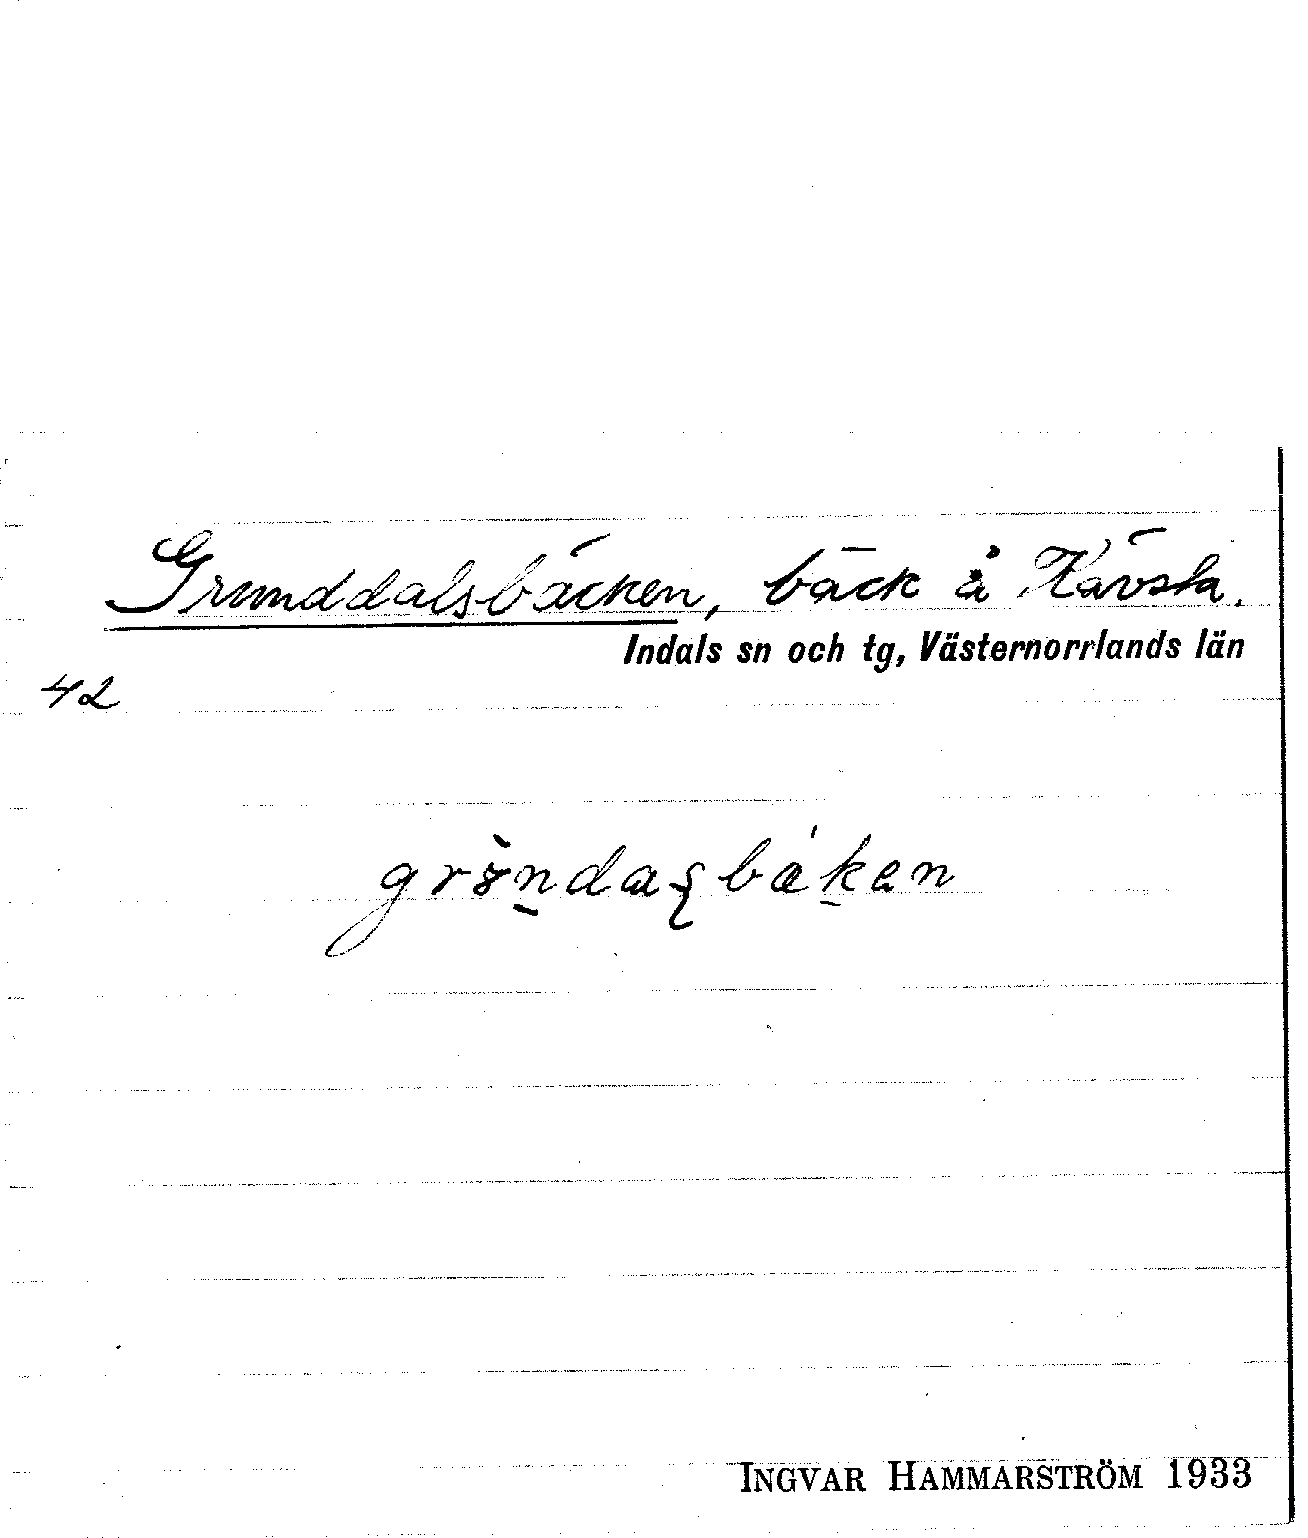 Grunddalsbäcken, bäck å Kävsta.
Indals sn och tg, Västernorrlands län
42
INGVAR HAMMARSTRÖM 1933